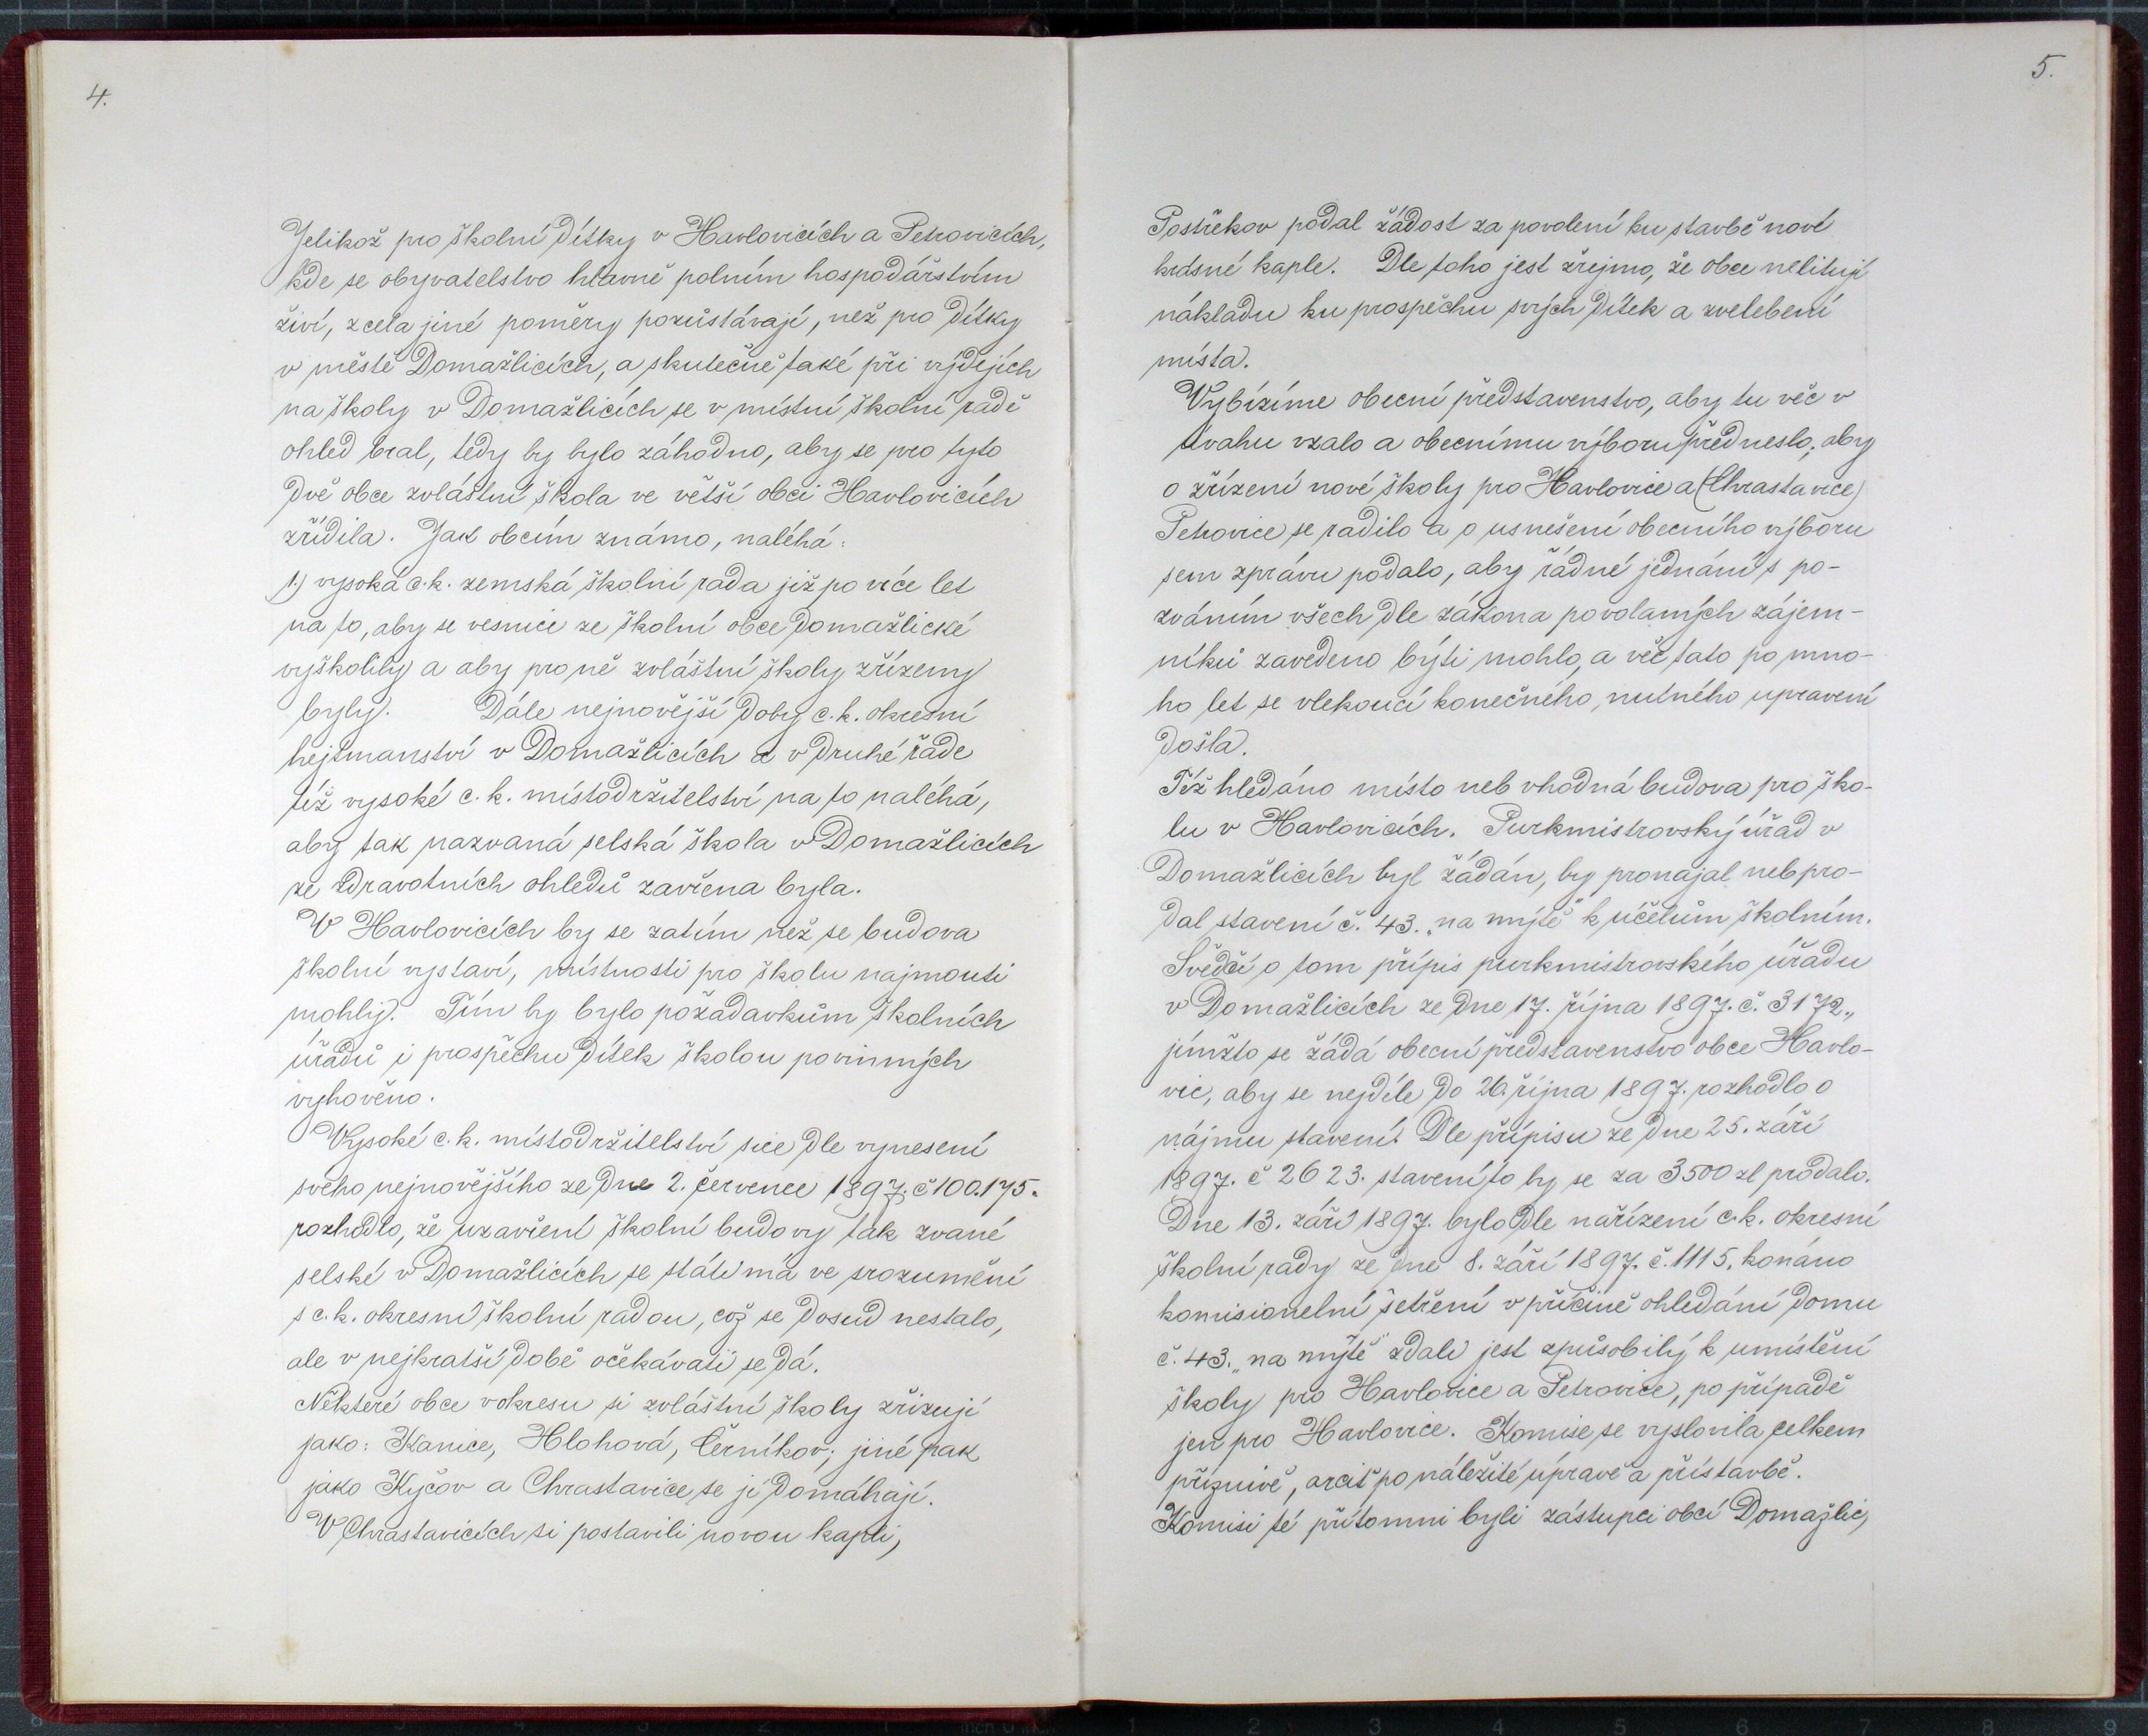 4.
Jelikož pro školní dítky v Havlovicích a Petrovicích,
kde se obyvatelstvo hlavně polním hospodářstvím
živí, zcela jiné poměry pozůstávají, než pro dítky
v městě Domažlicích, a skutečně také při výdejích
na školy v Domažlicích se v místní školní radě
ohled bral, tedy by bylo záhodno, aby se pro tyto
dvě obce zvláštní škola ve větší obci Havlovicích
zřídila. Jak obcím známo, naléhá:
1.) vysoká c.k. zemská školní rada již po více let
na to, aby se vesnice ze školní obce Domažlické
vyškolily a aby pro ně zvláštní školy zřízeny
byly. Dále nejnovější doby c.k. okresní
hejtmanství v Domažlicích a v druhé řadě
též vysoké c.k. místodržitelství na to naléhá,
aby tak nazvaná selská škola v Domažlicích
ze zdravotních ohledů zavřena byla.
V Havlovicích by se zatím než se budova
školní vystaví, místnosti pro školu najmouti
mohly. Tím by bylo požadavkům školních
úřadů i prospěchu dítek školou povinných
vyhověno.
Vysoké c.k. místodržitelství sice dle vynesení
svého nejnovějšího ze dne 2. července 1897. č 100.175.
rozhodlo, že uzavření školní budovy tak zvané
selské v Domažlicích se státi má ve srozumění
s c.k. okresní školní radou, což se dosud nestalo,
ale v nejkratší době očekávati se dá.
Některé obce v okresu si zvláštní školy zřizují
jako: Kanice, Hlohová, Černíkov; jiné pak
jako Kyčov a Chrastavice se jí domáhají.
V Chrastavicích si postavili novou kapli,
5.
Postřekov podal žádost za povolení ku stavbě nové
krásné kaple. Dle toho jest zřejmo, že obce nelitují
nákladu ku prospěchu svých dítek a zvelebení
místa.
Vybízíme obecní představenstvo, aby tu věc v
úvahu vzalo a obecnímu výboru předneslo, aby
o zřízení nové školy pro Havlovice a (Chrastavice)
Petrovice se radilo a o usnešení obecního výboru
sem zprávu podalo, aby řádné jednání s po-
zváním všech dle zákona povolaných zájem-
níků zavedeno býti mohlo, a věc tato po mno-
ho let se vlekoucí konečného, nutného upravení
došla.
Též hledáno místo neb vhodná budova pro ško-
lu v Havlovicích. Purkmistrovský úřad v
Domažlicích byl žádán, by pronajal neb pro-
dal stavení č. 43. „na mýtě" k účelům školním.
Svědčí o tom přípis purkmistrovského úřadu
v Domažlicích ze dne 17. října 1897. č. 3172.,
jímžto se žádá obecní představenstvo obce Havlo-
vic, aby se nejdéle do 26. října 1897. rozhodlo o
nájmu stavení. Dle přípisu ze dne 25. září
1897. č 2623. stavení to by se za 3500 zl prodalo.
Dne 13. září 1897. bylo dle nařízení c.k. okresní
školní rady ze dne 8. září 1897. č. 1115. konáno
komisionelní šetření v příčině ohledání domu
č. 43. „na mýtě" zdali jest způsobilý k umístění
školy pro Havlovice a Petrovice, po případě
jen pro Havlovice. Komise se vyslovila celkem
příznivě, arciť po náležité úpravě a přístavbě.
Komisi té přítomni byli zástupci obcí Domažlic,